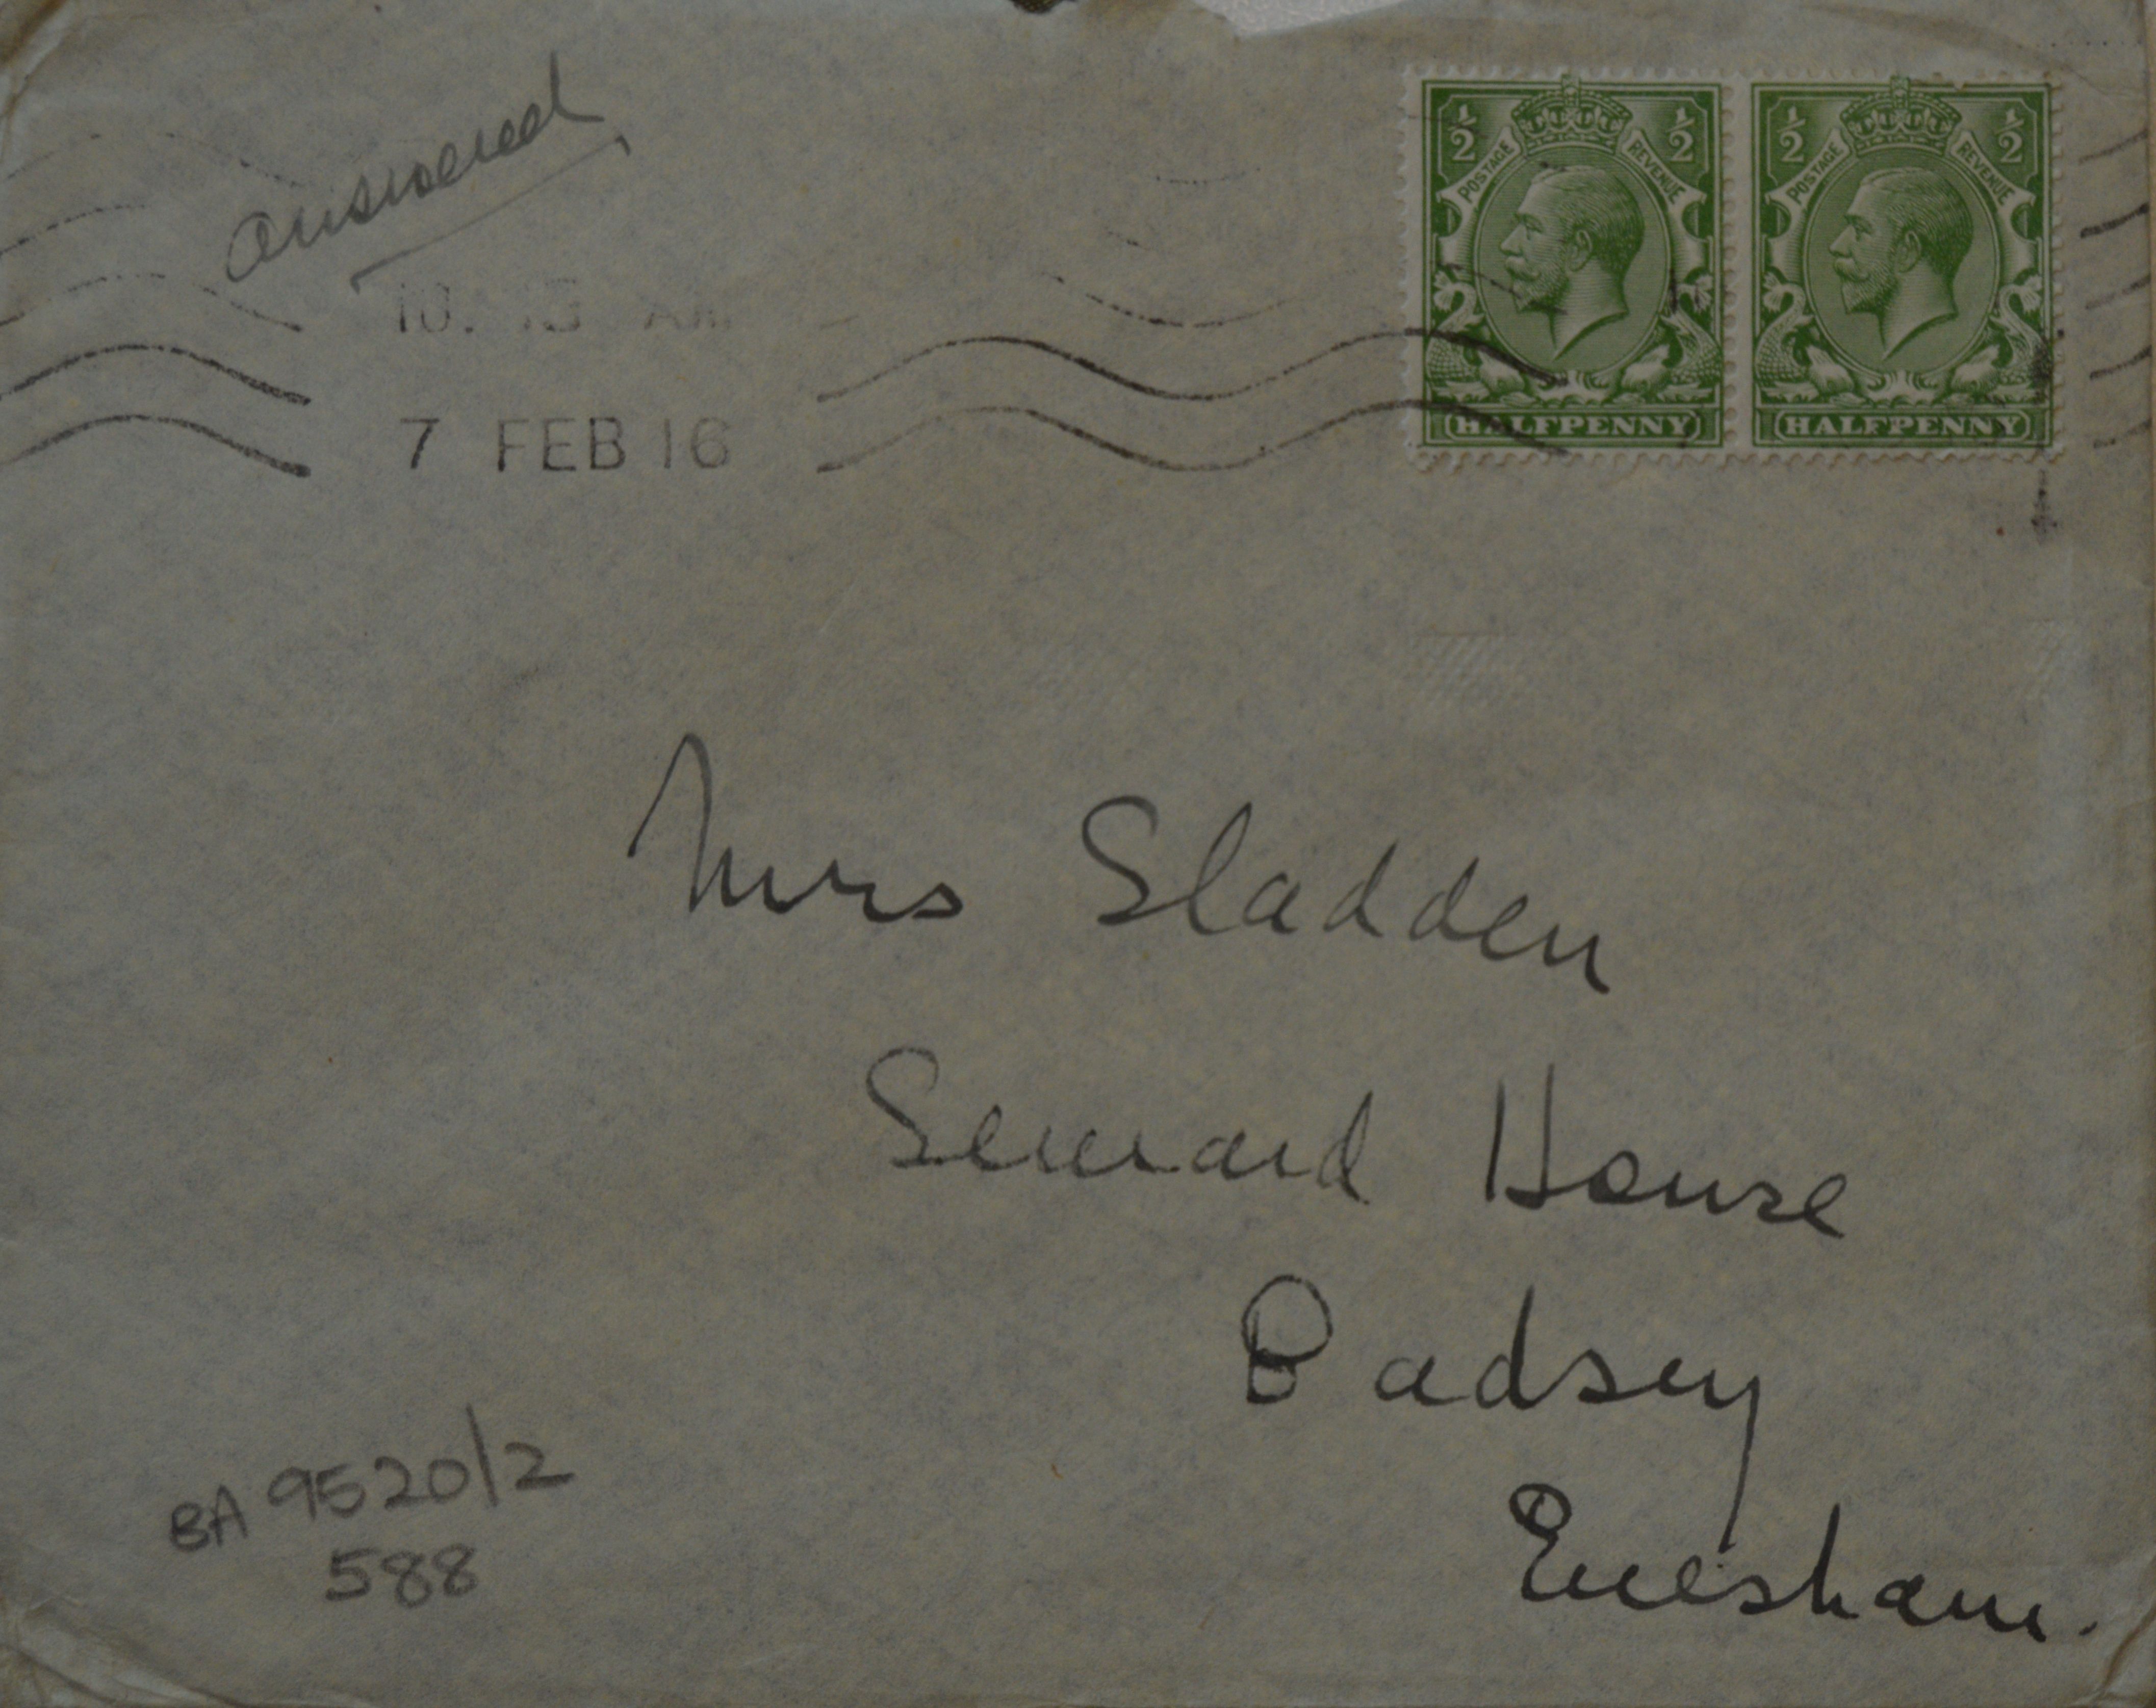 answered
10. 15 AM
7 FEB 16
½ POSTAGE REVENUE ½
HALFPENNY
½ POSTAGE REVENUE ½
HALFPENNY
Mrs Sladden
Seward House
Badsey
Evesham.
BA 9520/2
588